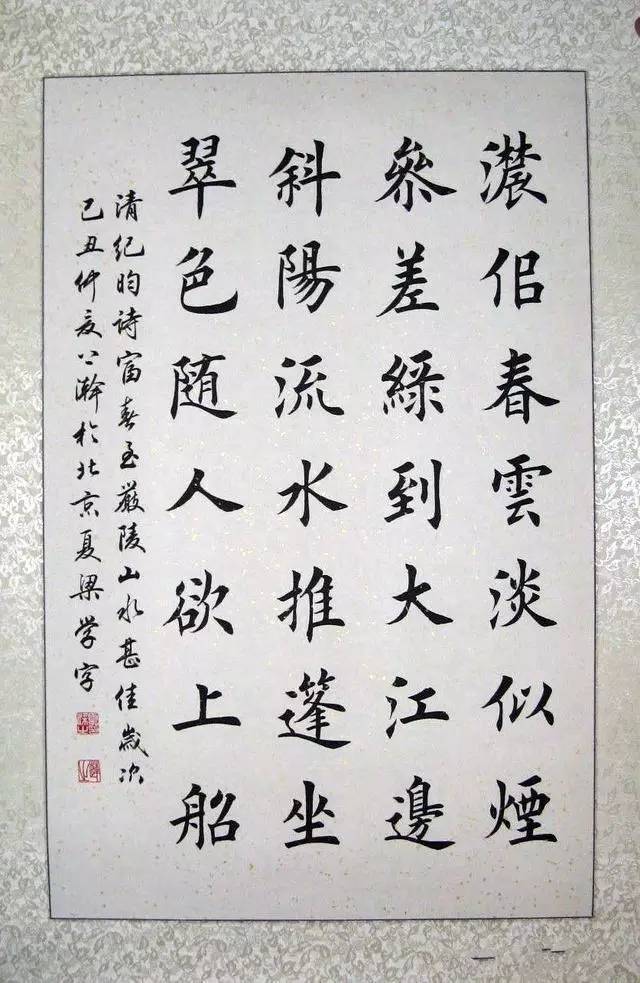 濃侶春雲淡似煙
叅差綠到大江邊
斜陽流水推蓬坐
翠色随人欲上船
清纪昀诗富春至嚴陵山水甚佳歲次
己丑仲夏公瀚於北京夏梁学字